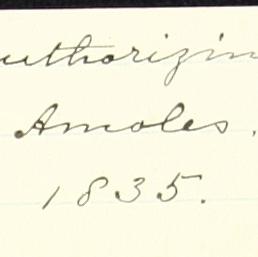 uthorizin
Amoles.
1835.